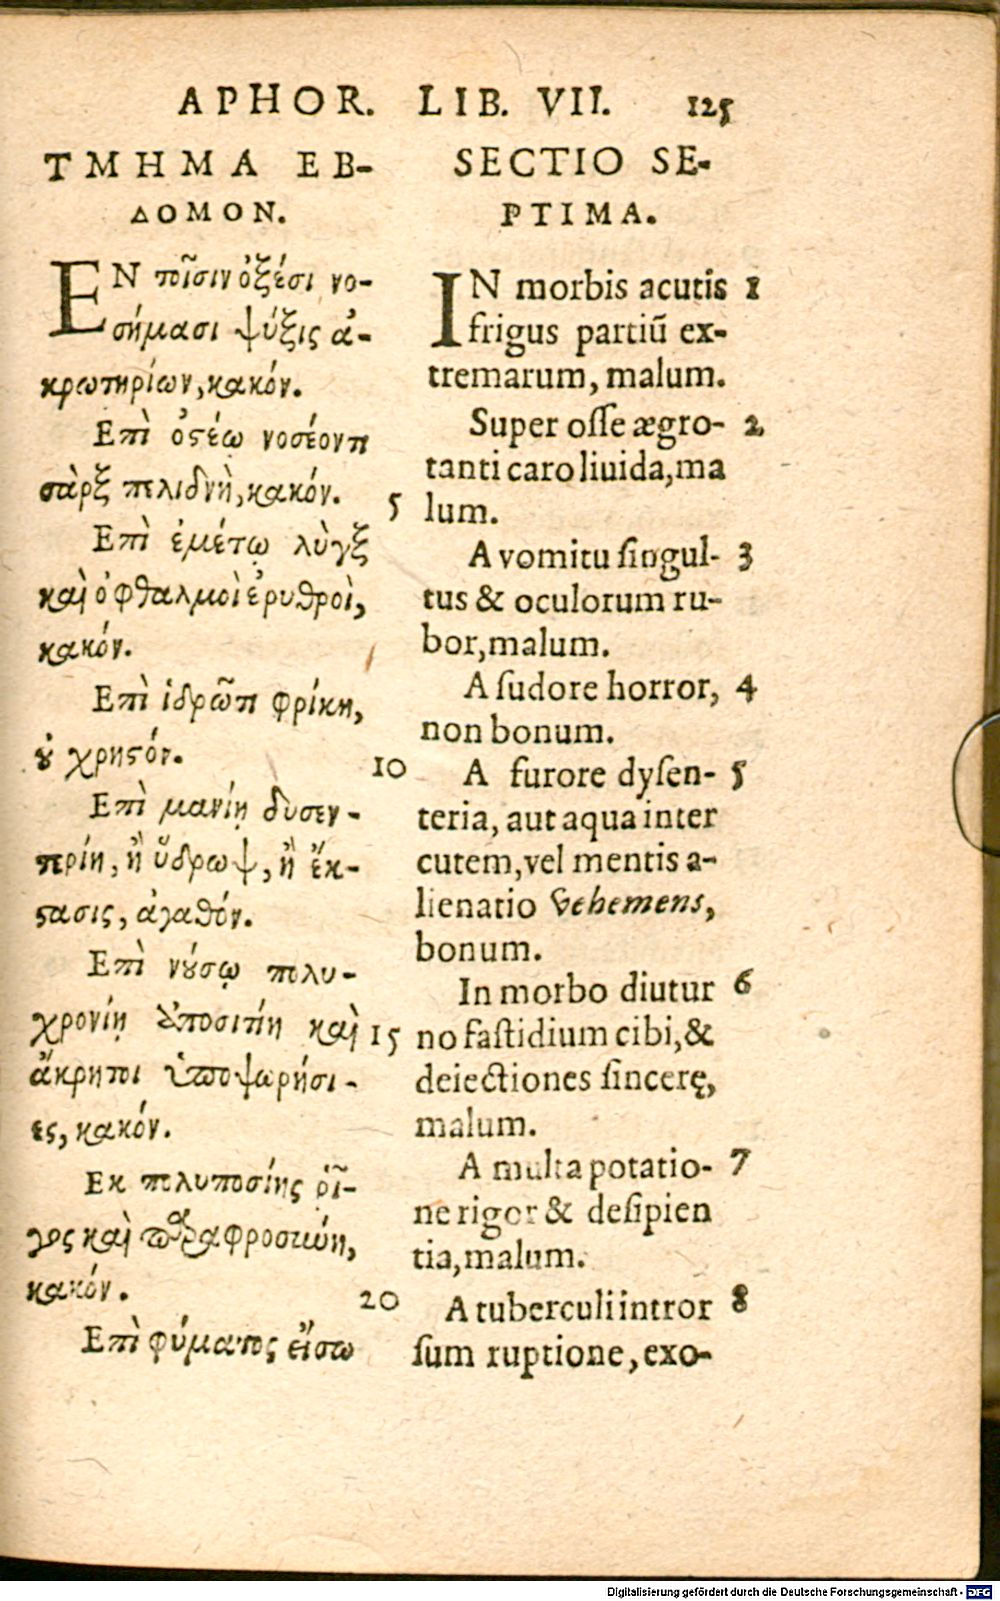 APHOR. LIB. VII. 125
ΤΜΗΜΑ ΕΒ-
ΔΟΜΟΝ.
ΕΝ τοῖσιν ὀξέσι νο-
σήμασι ψύξις ἀ-
κρωτηρίων, κακόν.
Επὶ ὀϛέῳ νοσέοντι
σὰρξ πελιδνὴ, κακόν.
Επὶ ἐμέτῳ λὺγξ
καὶ ὀφθαλμοὶ ἐρυθροὶ,
κακόν.
Επὶ ἱδρῶτι φρίκη,
ȣ χρηϛόν.
Επὶ μανίῃ δυσεν-
τερίη, ἢ ὕδρωψ, ἢ ἔκ-
ϛασις, ἀγαθόν.
Επὶ νȣ́σῳ πολυ-
χρονίῃ ἀποσιτίη καὶ
ἄκρητοι ὑποχωρήσι-
ες, κακόν.
Εκ πολυποσίης ῥῖ-
γος καὶ παραφροσύνη,
κακόν.
Επὶ φύματος εἴσω
5
10
15
20
SECTIO SE-
PTIMA.
IN morbis acutis 1
frigus partiū ex-
tremarum, malum.
Super osse ægro- 2
tanti caro liuida, ma
lum.
A vomitu singul- 3
tus & oculorum ru-
bor, malum.
A sudore horror, 4
non bonum.
A furore dysen- 5
teria, aut aqua inter
cutem, vel mentis a-
lienatio vehemens,
bonum.
In morbo diutur 6
no fastidium cibi, &
deiectiones sincerę,
malum.
A multa potatio- 7
ne rigor & desipien
tia, malum.
A tuberculi intror 8
sum ruptione, exo-
Digitalisierung gefördert durch die Deutsche Forschungsgemeinschaft - DFG